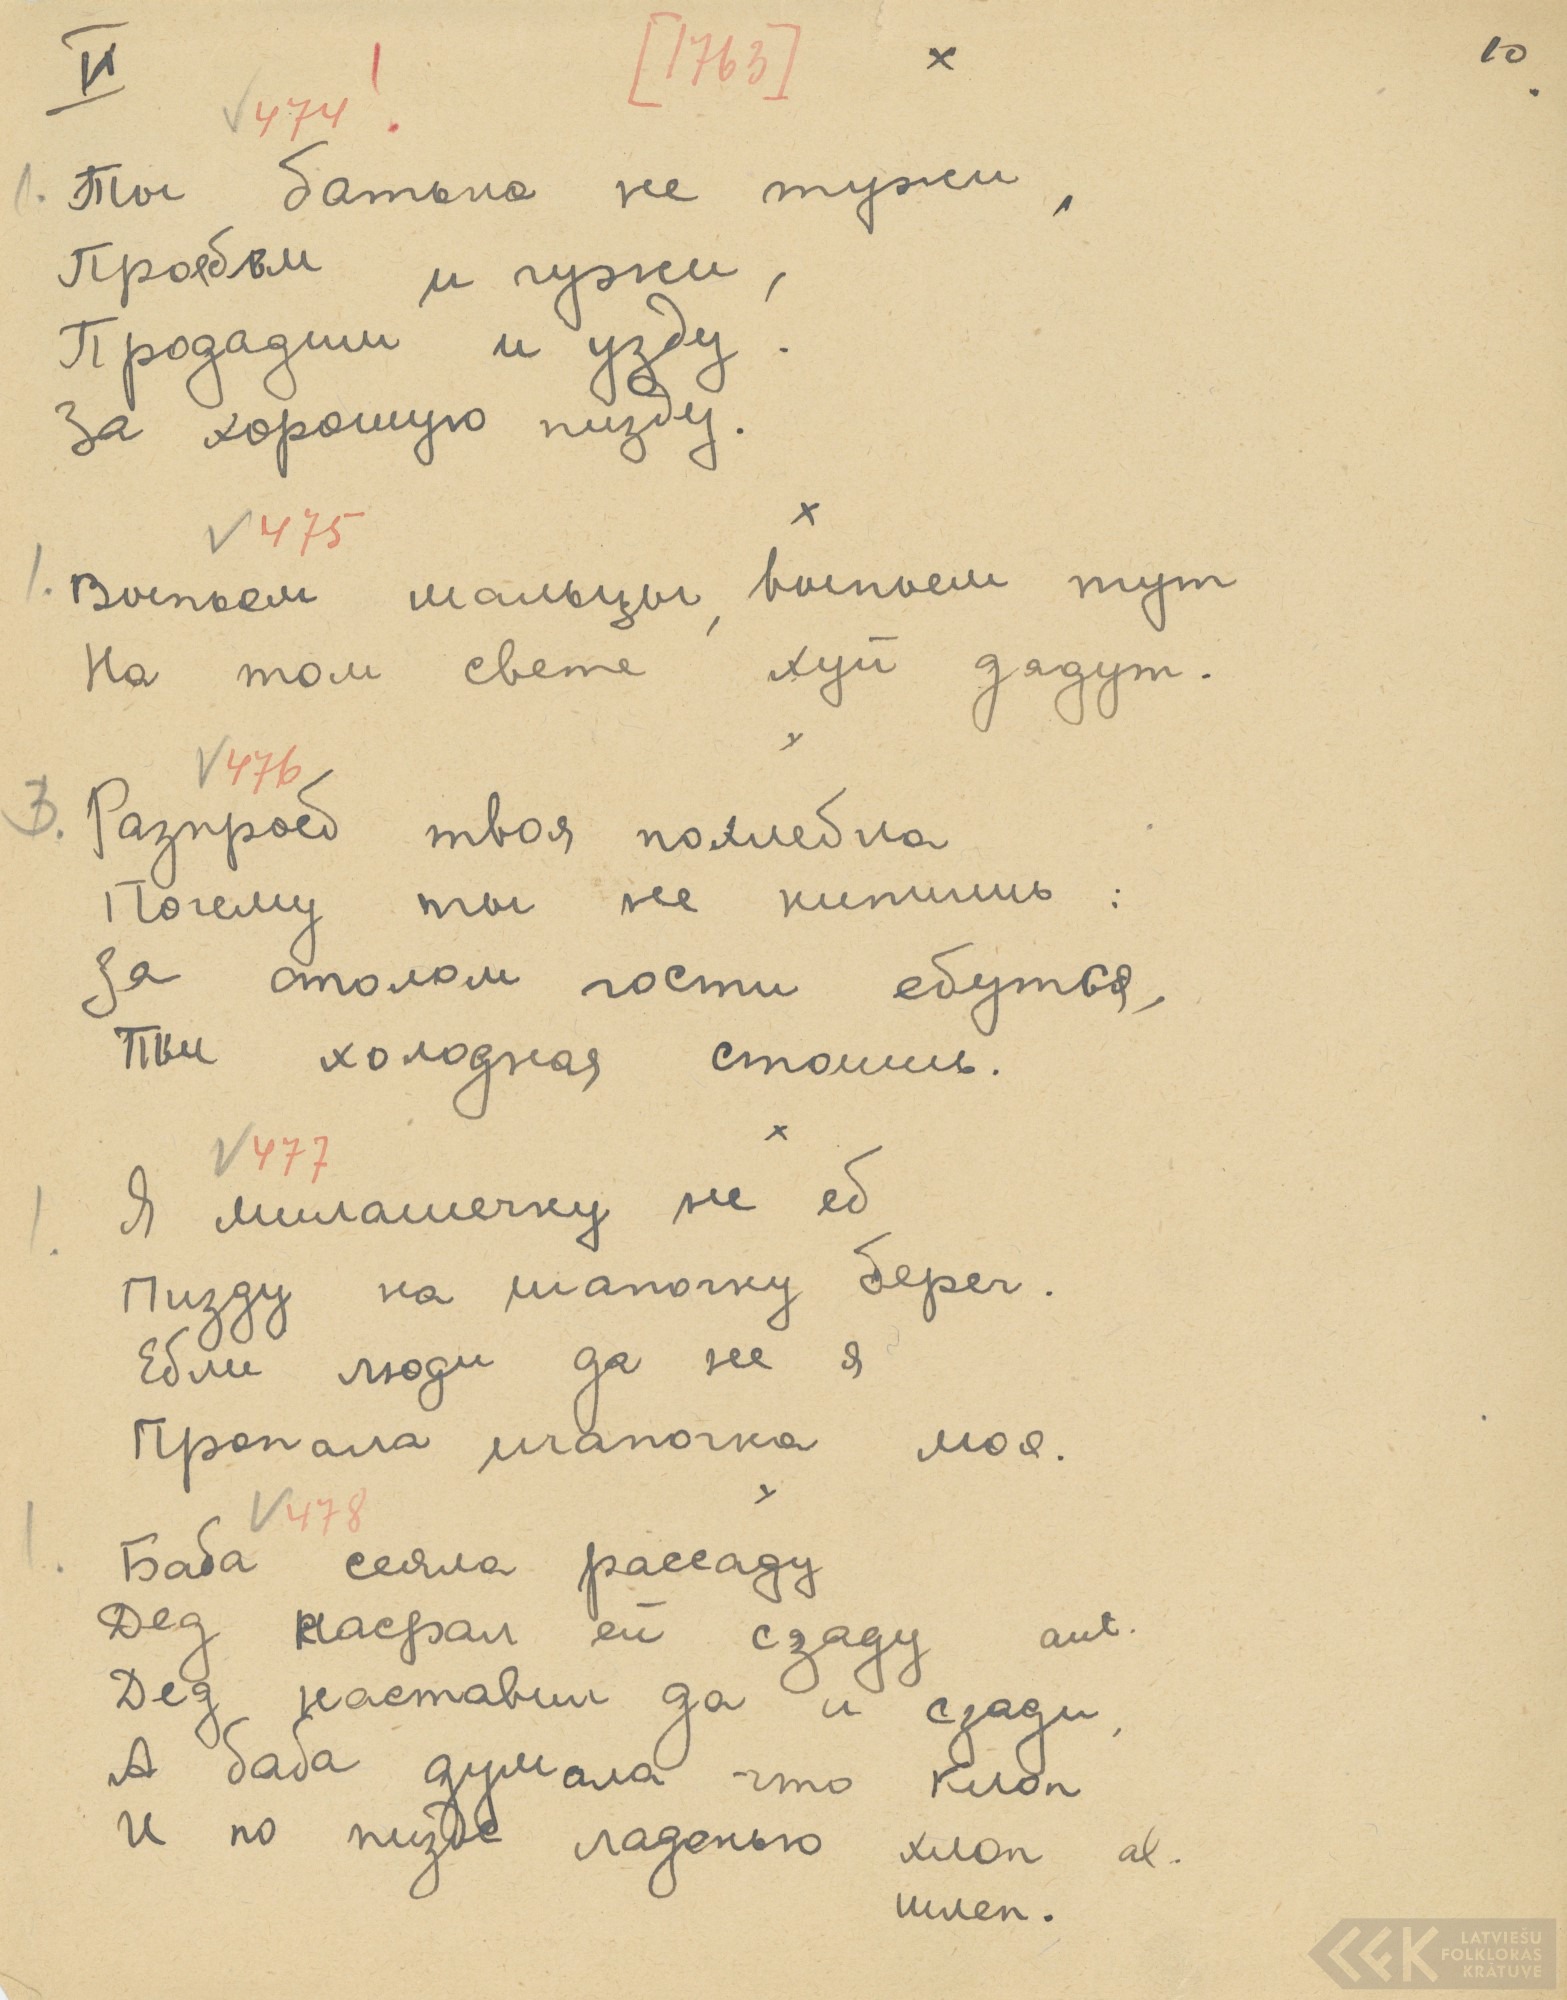 VI ! [1763] x 10.
√474 .
1. Ты батька не тужи,
Проебём и гужи,
Продадим и узду.
За хорошую пизду.
√475 x
1. Выпьем мальцы, выпьем тут
На том свете хуй дадут.
√476 x
3. Разпроеб твоя похлебка
Почему ты не кипишь :
За столом гости ебуться,
Ты холодная стоишь.
√477 x
1. Я милашечку не еб
Пизду на шапочку берег.
Ебли люди да не я
Пропала шапочка моя.
√478 x
1. Баба сеяла рассаду
Дед насрал ей сзаду aut.
Дед наставил да и сзади,
А баба думала что клоп
И по пизде ладонью хлоп al.
шлеп.
LATVIEŠU
FOLKLORAS
KRĀTUVE